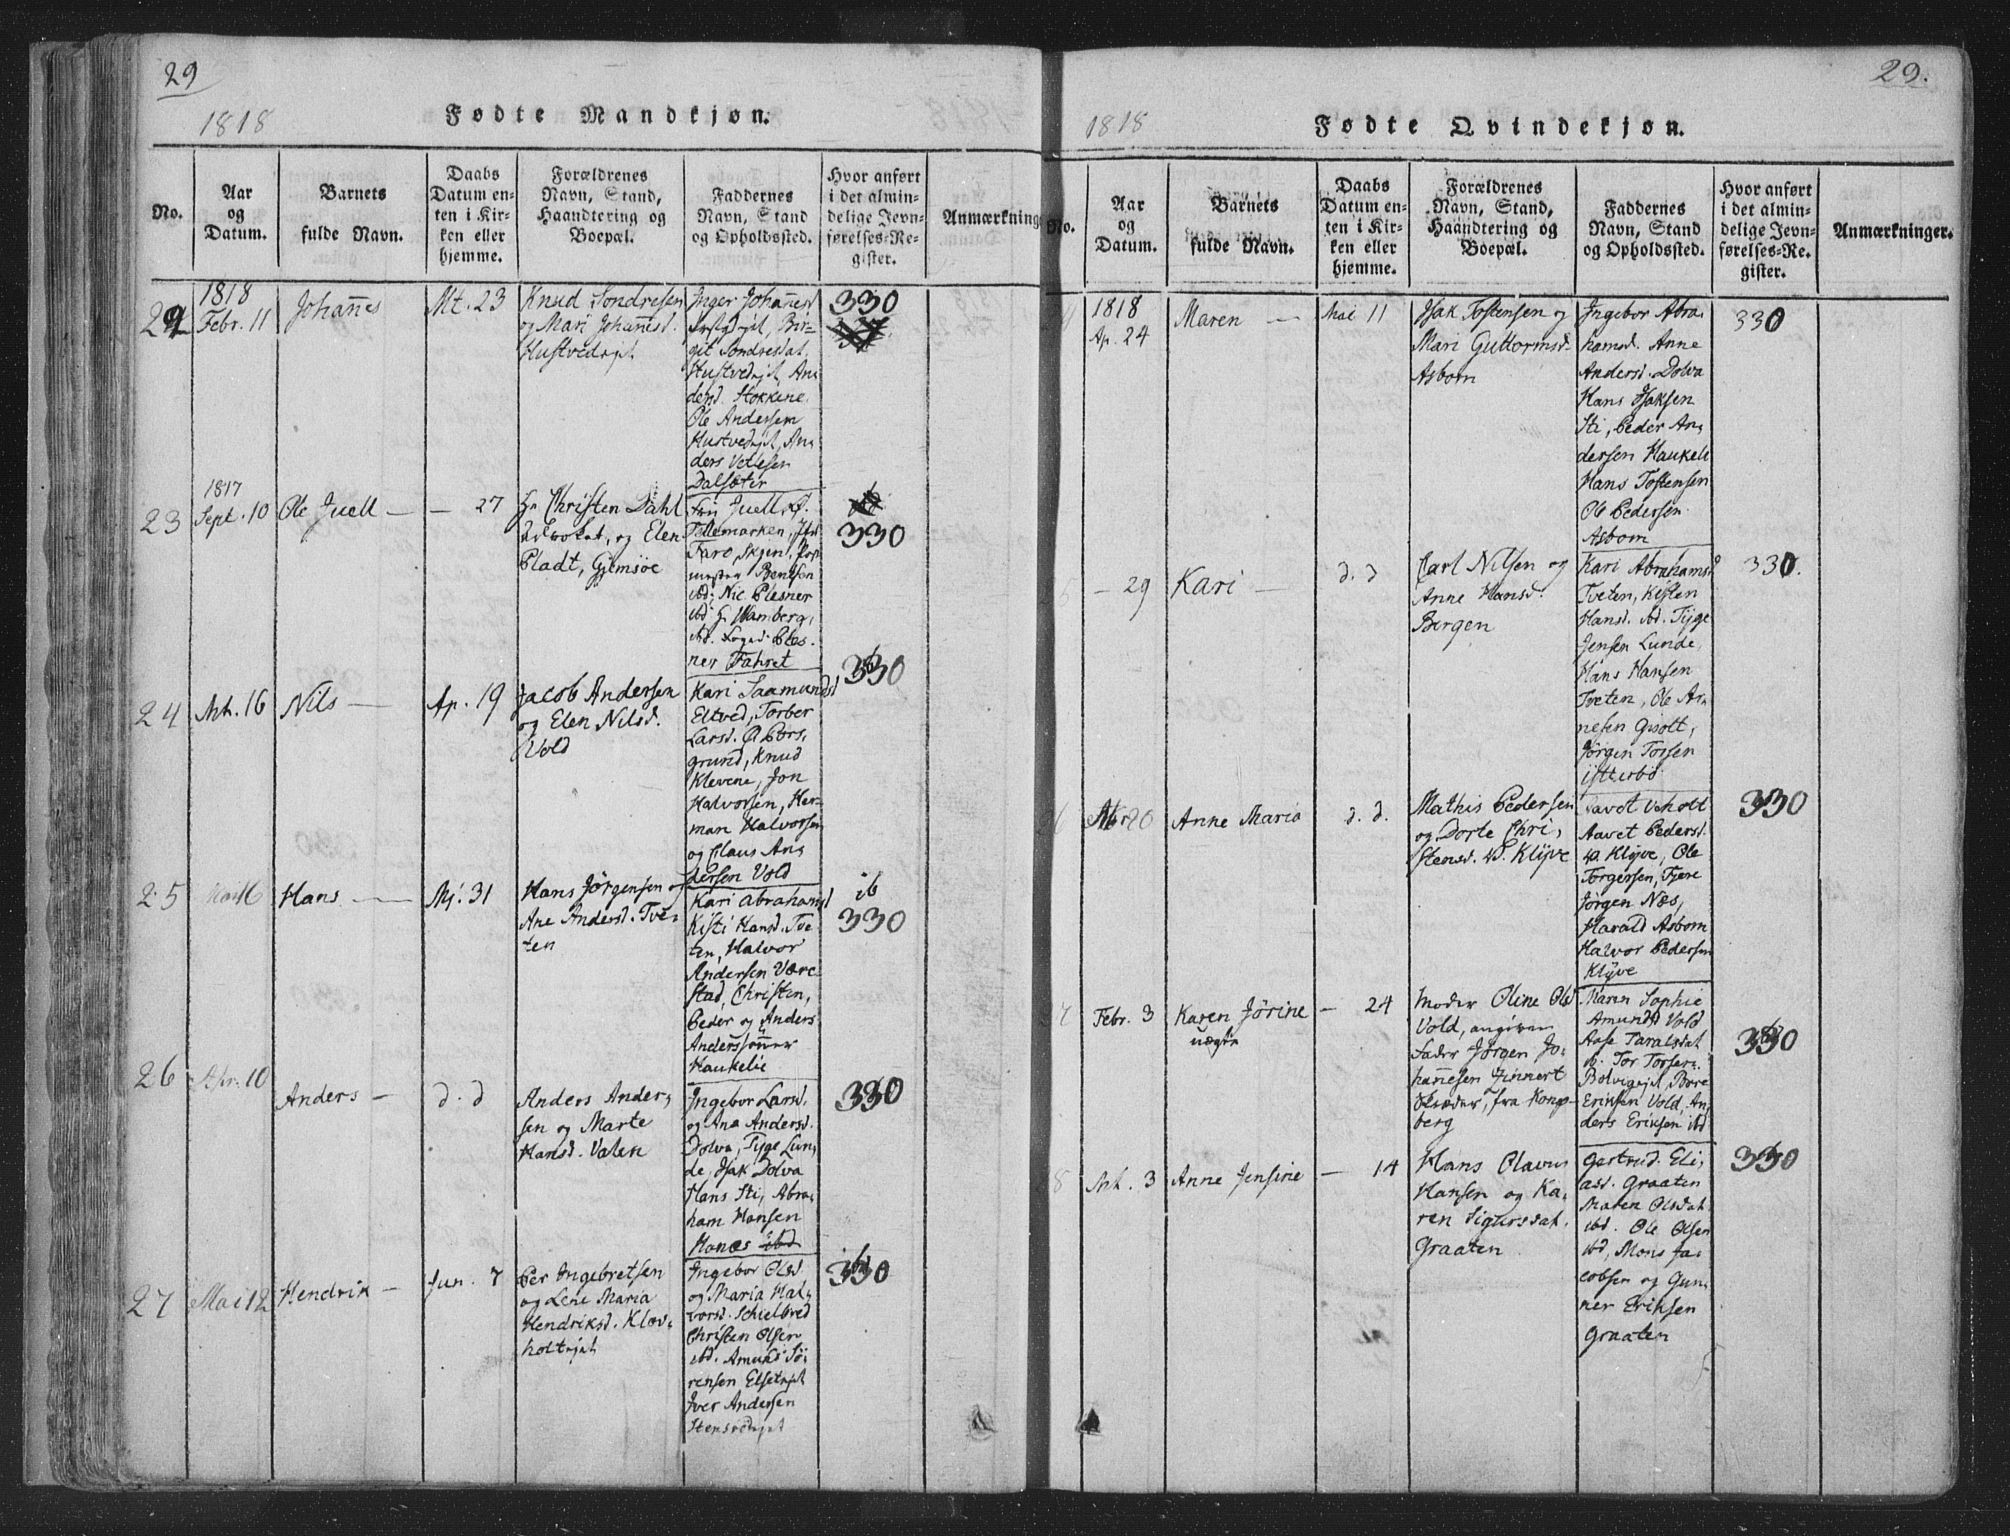 29
1818
Fødte Mandkjøn.
No.
Aar
og
Datum.
Barnets
fulde Navn.
Daabs
Datum en-
ten i Kir-
ken eller
hjemme.
Forældrenes
Navn, Stand,
Haandtering og
Boepæl.
Faddernes
Navn, Stand
og Opholdssted.
Hvor anført
i det almin-
delige Jevn-
førelses-Re-
gister.
Anmærkninge
1818
Febr. 11
Johannes
Mt. 23
Knud Sondresen
og Mari Johannesd.
Hustvedejet
Inger Johannesd
git Sondresdat.
Hustvedejet, An-
dersd. Stokkene
Ole Andersen
Hustvedejet, An-
ders Vetlesen
Dalsæter
330
23
1817
Sept. 10
Ole Juell —
— 27
Hr Christen Dahl
og Elen
Pladt, Gjemsøe
Juell
Tellemarken,
Bentsen
ibd. Nic. Plesner
ibd
Ples-
ner Fahret
330
24
Mt. 16
Nils —
Ap. 19
Jacob Andersen
og Elen Nilsd.
Vold
Kari Saamundsd
Eltved, Torber
Larsd. Pors-
grund, Knud
Klevene, Jon
Halvorsen, Her-
man Halvorsen
og Claus An-
dersen Vold
330
25
Hans —
Mj. 31
Hans Jørgensen og
Ane Andersd. Tve-
ten
Kari Abrahamsd
Kisti Hansd. Tve-
ten, Halvor
Andersen Være-
stad, Christen,
Peder og Anders
Anderssønner
Haukelie
ib
330
26
Apr. 10
Anders —
d. d
Anders Ander-
sen og Marte
Hansd. Valen
Ingebor Larsd.
og Ane Andersd.
Dolva, Tyge Lun-
de, Isak Dolva
Hans Sti, Abra-
ham Hansen
Hanes ibd
330
27
Mai 12
Hendrik —
Jun. 7
Per Ingebretsen
og Lene Maria
Hendriksd. Klov-
holtejet
Ingebor Olsd
og Maria Hal-
vorsd. Schielbred
Christen Olsen
ibd. Amund Sø-
rensen Elsetejet
Iver Andersen
Stensvedejet
330
29.
1818
Fødte Qvindekjøn.
No.
Aar
og
Datum.
Barnets
fulde Navn.
Daabs
Datum en-
ten i Kir-
ken eller
hjemme.
Forældrenes
Navn, Stand,
Haandtering og
Boepæl.
Faddernes
Navn, Stand
og Opholdssted.
Hvor anført
i det almin-
delige Jevn-
førelses-Re-
gister.
Anmærkninger.
1818
Ap. 24
Maren —
Mai 11
Isak Tostensen og
Mari Guttormsd.
Asbom
Ingebor Abra-
hamsd. Anne
Andersd. Dolva
Hans Isaksen
Sti, Peder An-
dersen Haukeli
Hans Tostensen
Ole Pedersen
Asbom
330
— 29
Kari —
d. d
Carl Nilsen og
Anne Hansd.
Bergen
Kari Abrahamsd
Tveten, Kisten
Hansd. ibd. Tyge
Jensen Lunde,
Hans Hansen
Tveten, Ole Ar-
nesen Gisolt,
Jørgen Torsen
Ytterbø
330.
20
Anne Maria
d. d.
Mathis Pedersen
og Dorte Chri-
stensd. Klyve
Aavet Pedersd.
Klyve, Ole
Torgersen, Fjære
Jørgen Næs,
Harald Asbom
Halvor Pedersen
Klyve
330
Febr. 3
Karen Jørine
uægte
— 24
Moder Oline Olsd
Vold, angiven
Fader Jørgen Jo-
hannesen Finnert
Skræder, fra Kongs-
berg
Maren Sophie
Amundsd Vold
Aase Taralsdat
ib. Tor Torsen
Bolvigejet, Bore
Eriksen Vold, An-
ders Eriksen ibd
330
8
Mt. 3
Anne Jensine
— 14
Hans Olavus
Hansen og Ka-
ren Sigursdat.
Graaten
Gertrud Eli-
asd. Graaten
Maren Olsdat
ibd. Ole Olsen
ibd, Mons Ja-
cobsen og Gun-
ner Eriksen
Graaten
330